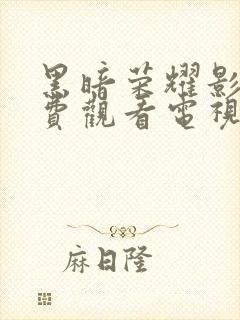 黑暗荣耀影
費觀看電視
麻日隆